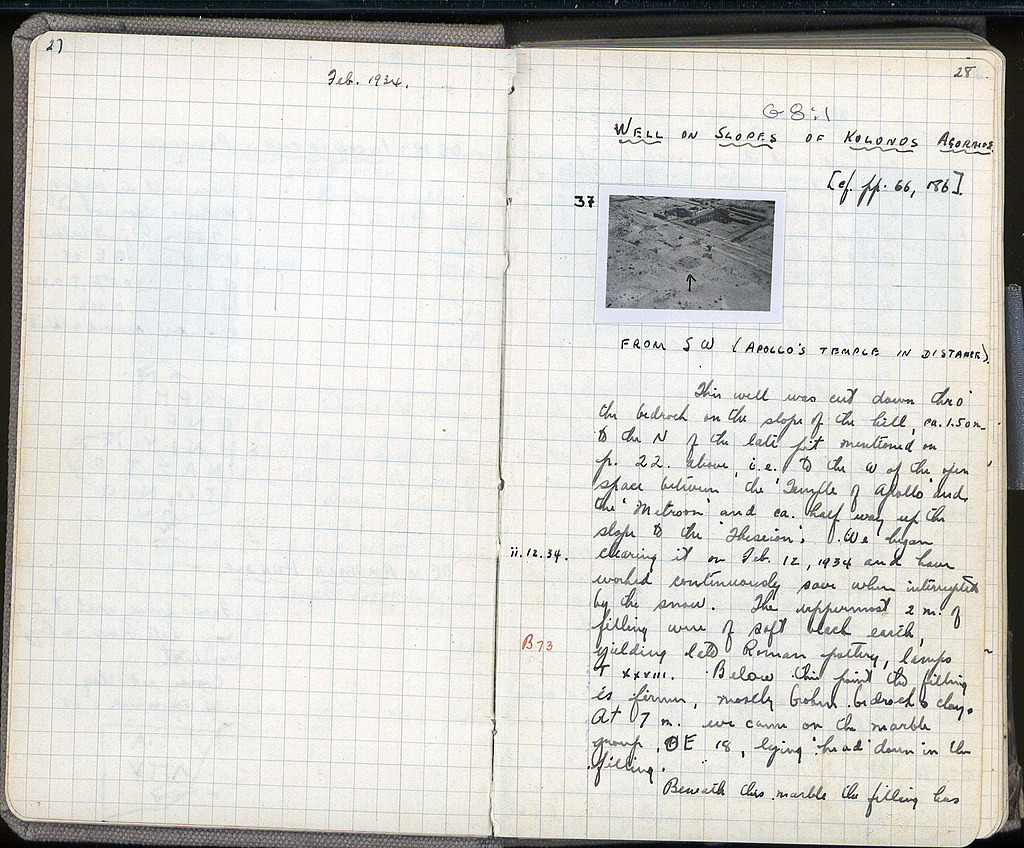 27
Feb. 1934.
28
G 8:1
WELL ON SLOPES OF KOLONOS AGORAIOS
[cf. pp. 66, 186].
37
FROM SW (APOLLO'S TEMPLE IN DISTANCE).
This well was cut down thro'
the bedrock on the slope of the hill, ca. 1.50 m.
to the N of the late pit mentioned on
p. 22. above, i.e. to the W of the open
space between the 'Temple of Apollo' and
the 'Metroon' and ca. half way up the
slope to the 'Theseion'. We began
ii.12.34.
clearing it on Feb. 12, 1934 and have
worked continuously save when interrupted
by the snow. The uppermost 2 m. of
filling were of soft black earth,
B73
yielding late Roman pottery, lamps
T XXVIII. Below this point the filling
is firmer, mostly broken bedrock & clay.
At 7 m. we came on the marble
group, ΟΕ 18, lying 'head' down in the
filling.
Beneath this marble the filling has